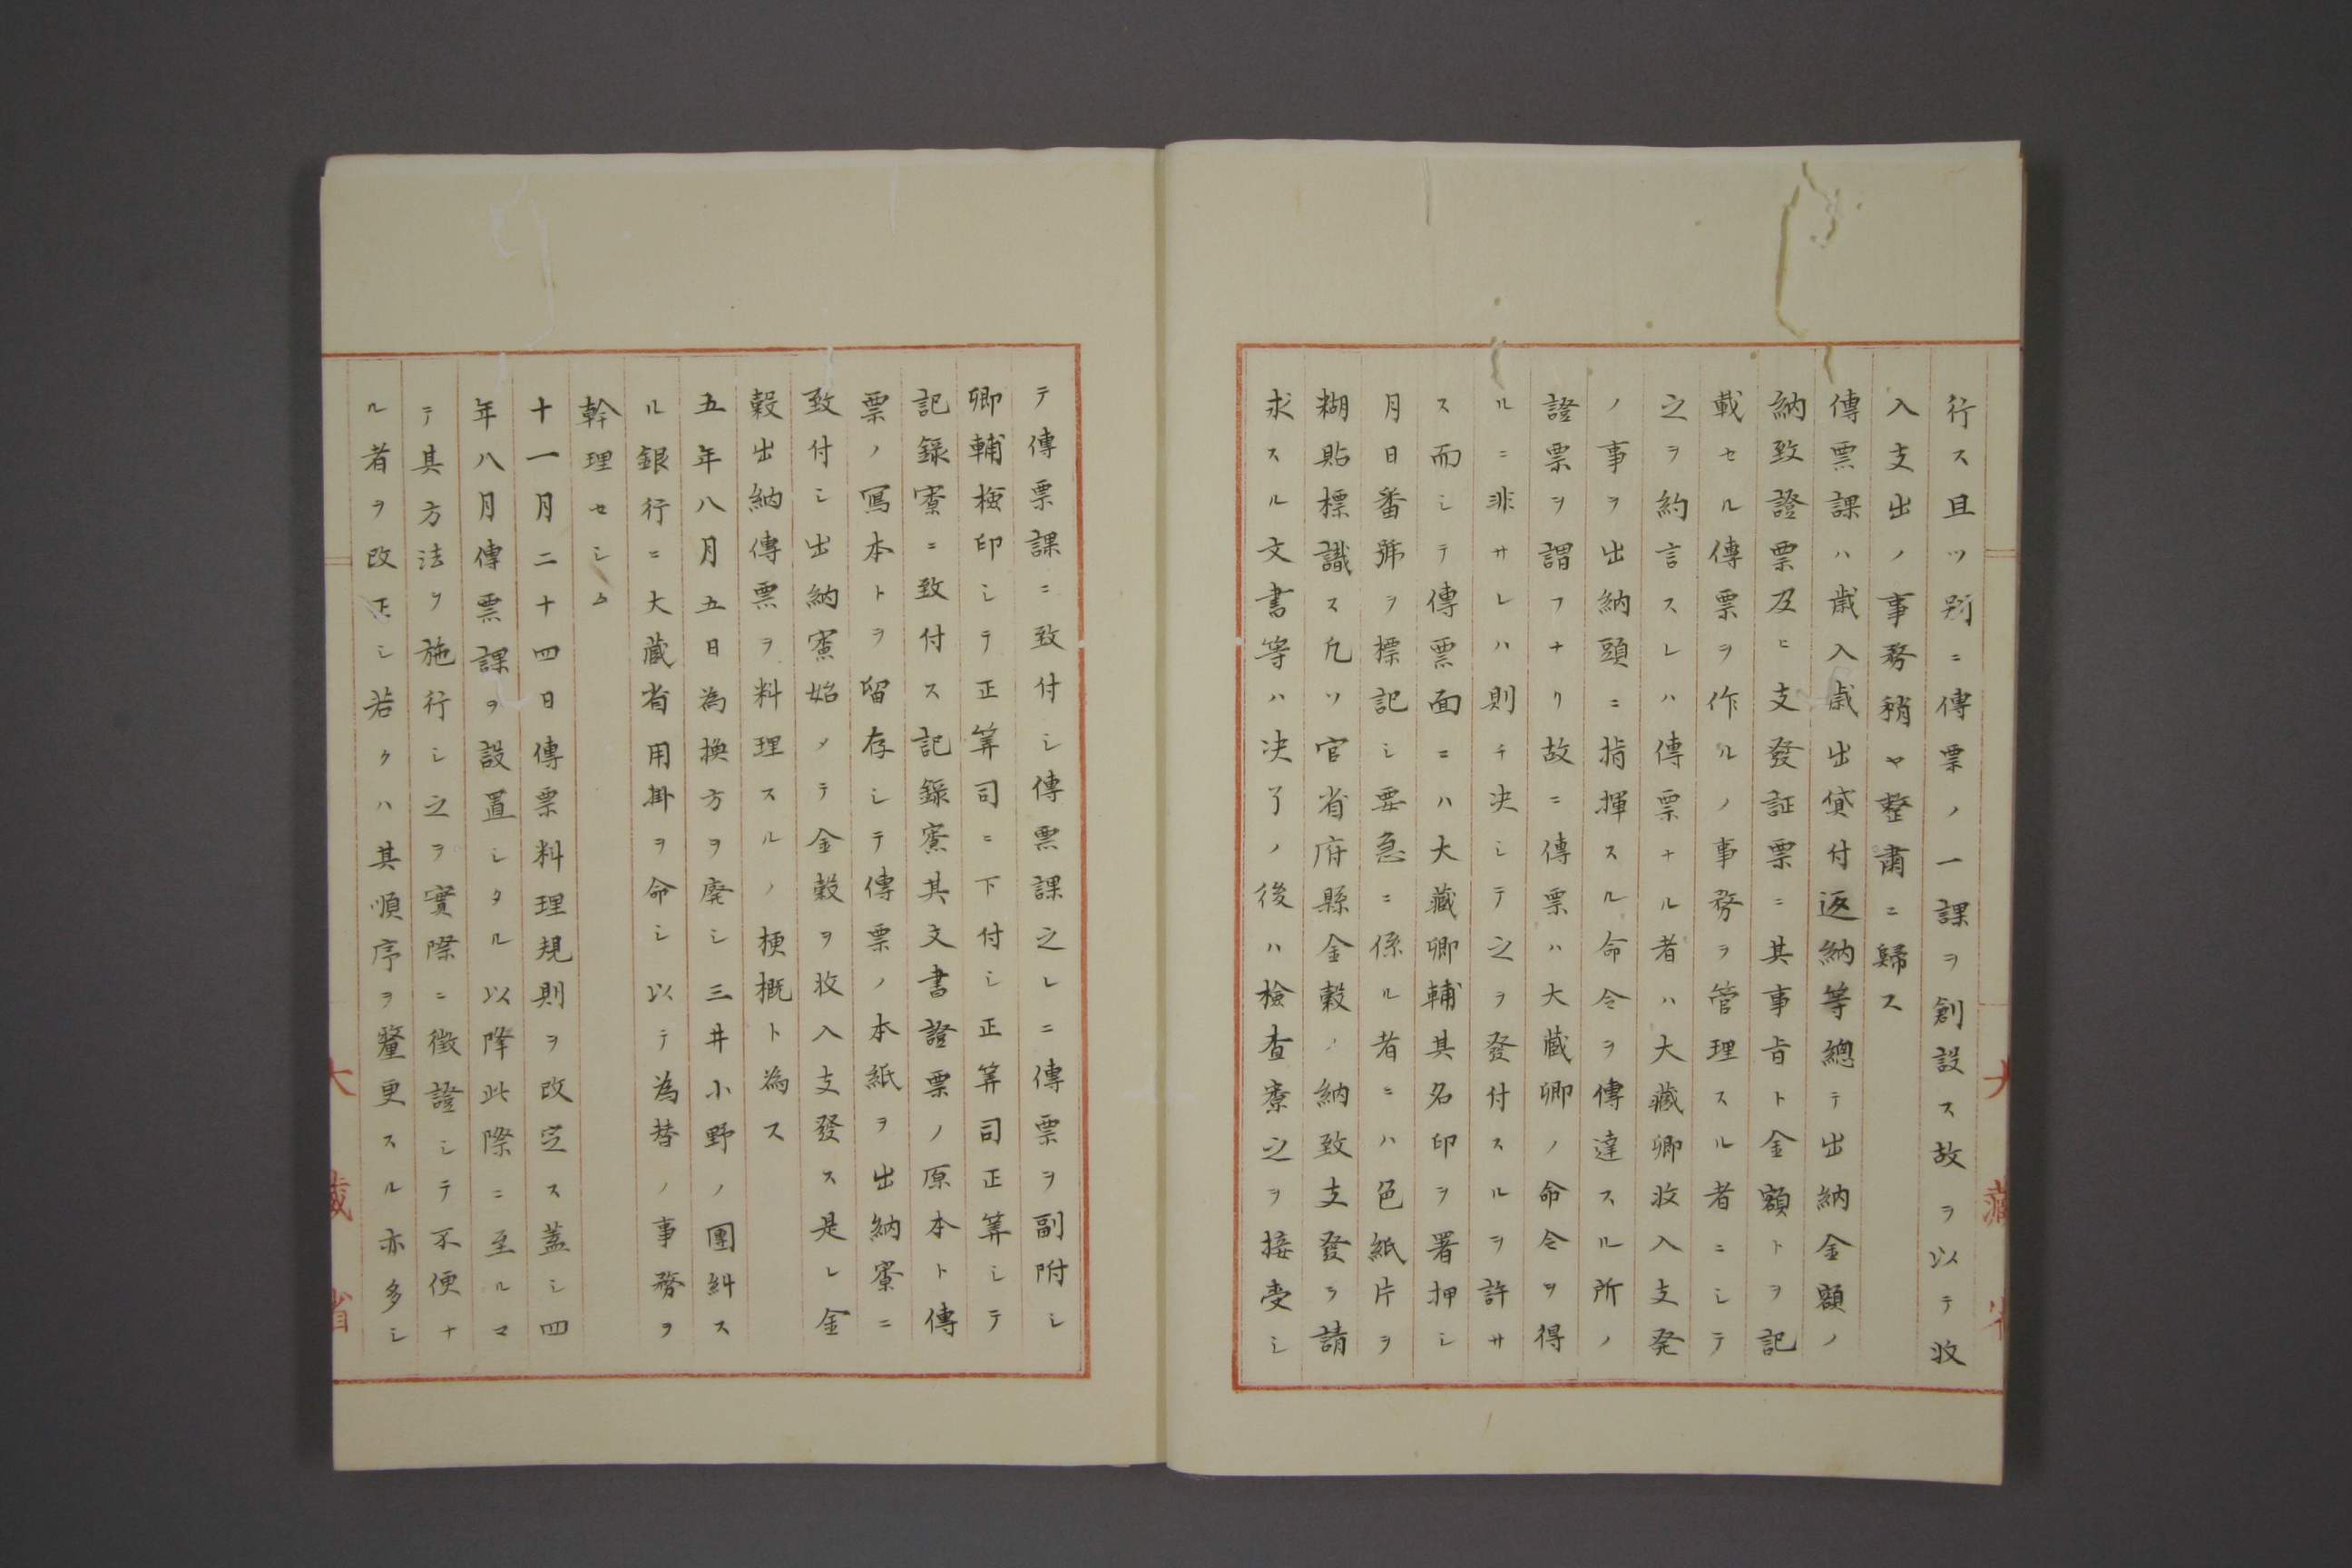 行ス且ツ別ニ傳票ノ一課ヲ創設ス故ヲ以テ收
入支出ノ事務稍ヤ整肅ニ歸ス
傳票課ハ歳入歳出貸付返納等總テ出納金額ノ
納致證票及ヒ支發証票ニ其事旨ト金額トヲ記
載セル傳票ヲ作ルノ事務ヲ管理スル者ニシテ
之ヲ約言スレハ傳票ナル者ハ大藏卿收入支発
ノ事ヲ出納頭ニ指揮スル命令ヲ傳達スル所ノ
證票ヲ謂フナリ故ニ傳票ハ大藏卿ノ命令ヲ得
ルニ非サレハ則チ决シテ之ヲ發付スルヲ許サ
ス而シテ傳票面ニハ大藏卿輔其名印ヲ署押シ
月日番號ヲ標記シ要急ニ係ル者ニハ色紙片ヲ
糊貼標識ス凡ソ官省府縣金穀ノ納致支發ヲ請
求スル文書等ハ决了ノ後ハ檢査寮之ヲ接受シ
テ傳票課ニ致付シ傳票課之レニ傳票ヲ副附シ
卿輔檢印シテ正筭司ニ下付シ正筭司正筭シテ
記錄寮ニ致付ス記錄寮其文書證票ノ原本ト傳
票ノ寫本トヲ留存シテ傳票ノ本紙ヲ出納寮ニ
致付シ出納寮始メテ金穀ヲ收入支發ス是レ金
穀出納傳票ヲ料理スルノ梗概ト為ス
五年八月五日為換方ヲ廃シ三井小野ノ團糾ス
ル銀行ニ大藏省用掛ヲ命シ以テ為替ノ事務ヲ
幹理セシム
十一月二十四日傳票料理規則ヲ改定ス蓋シ四
年八月傳票課ヲ設置シタル以降此際ニ至ルマ
テ其方法ヲ施行シ之ヲ實際ニ徴證シテ不便ナ
ル者ヲ改正シ若クハ其順序ヲ釐更スル亦多シ
大藏省
大藏省